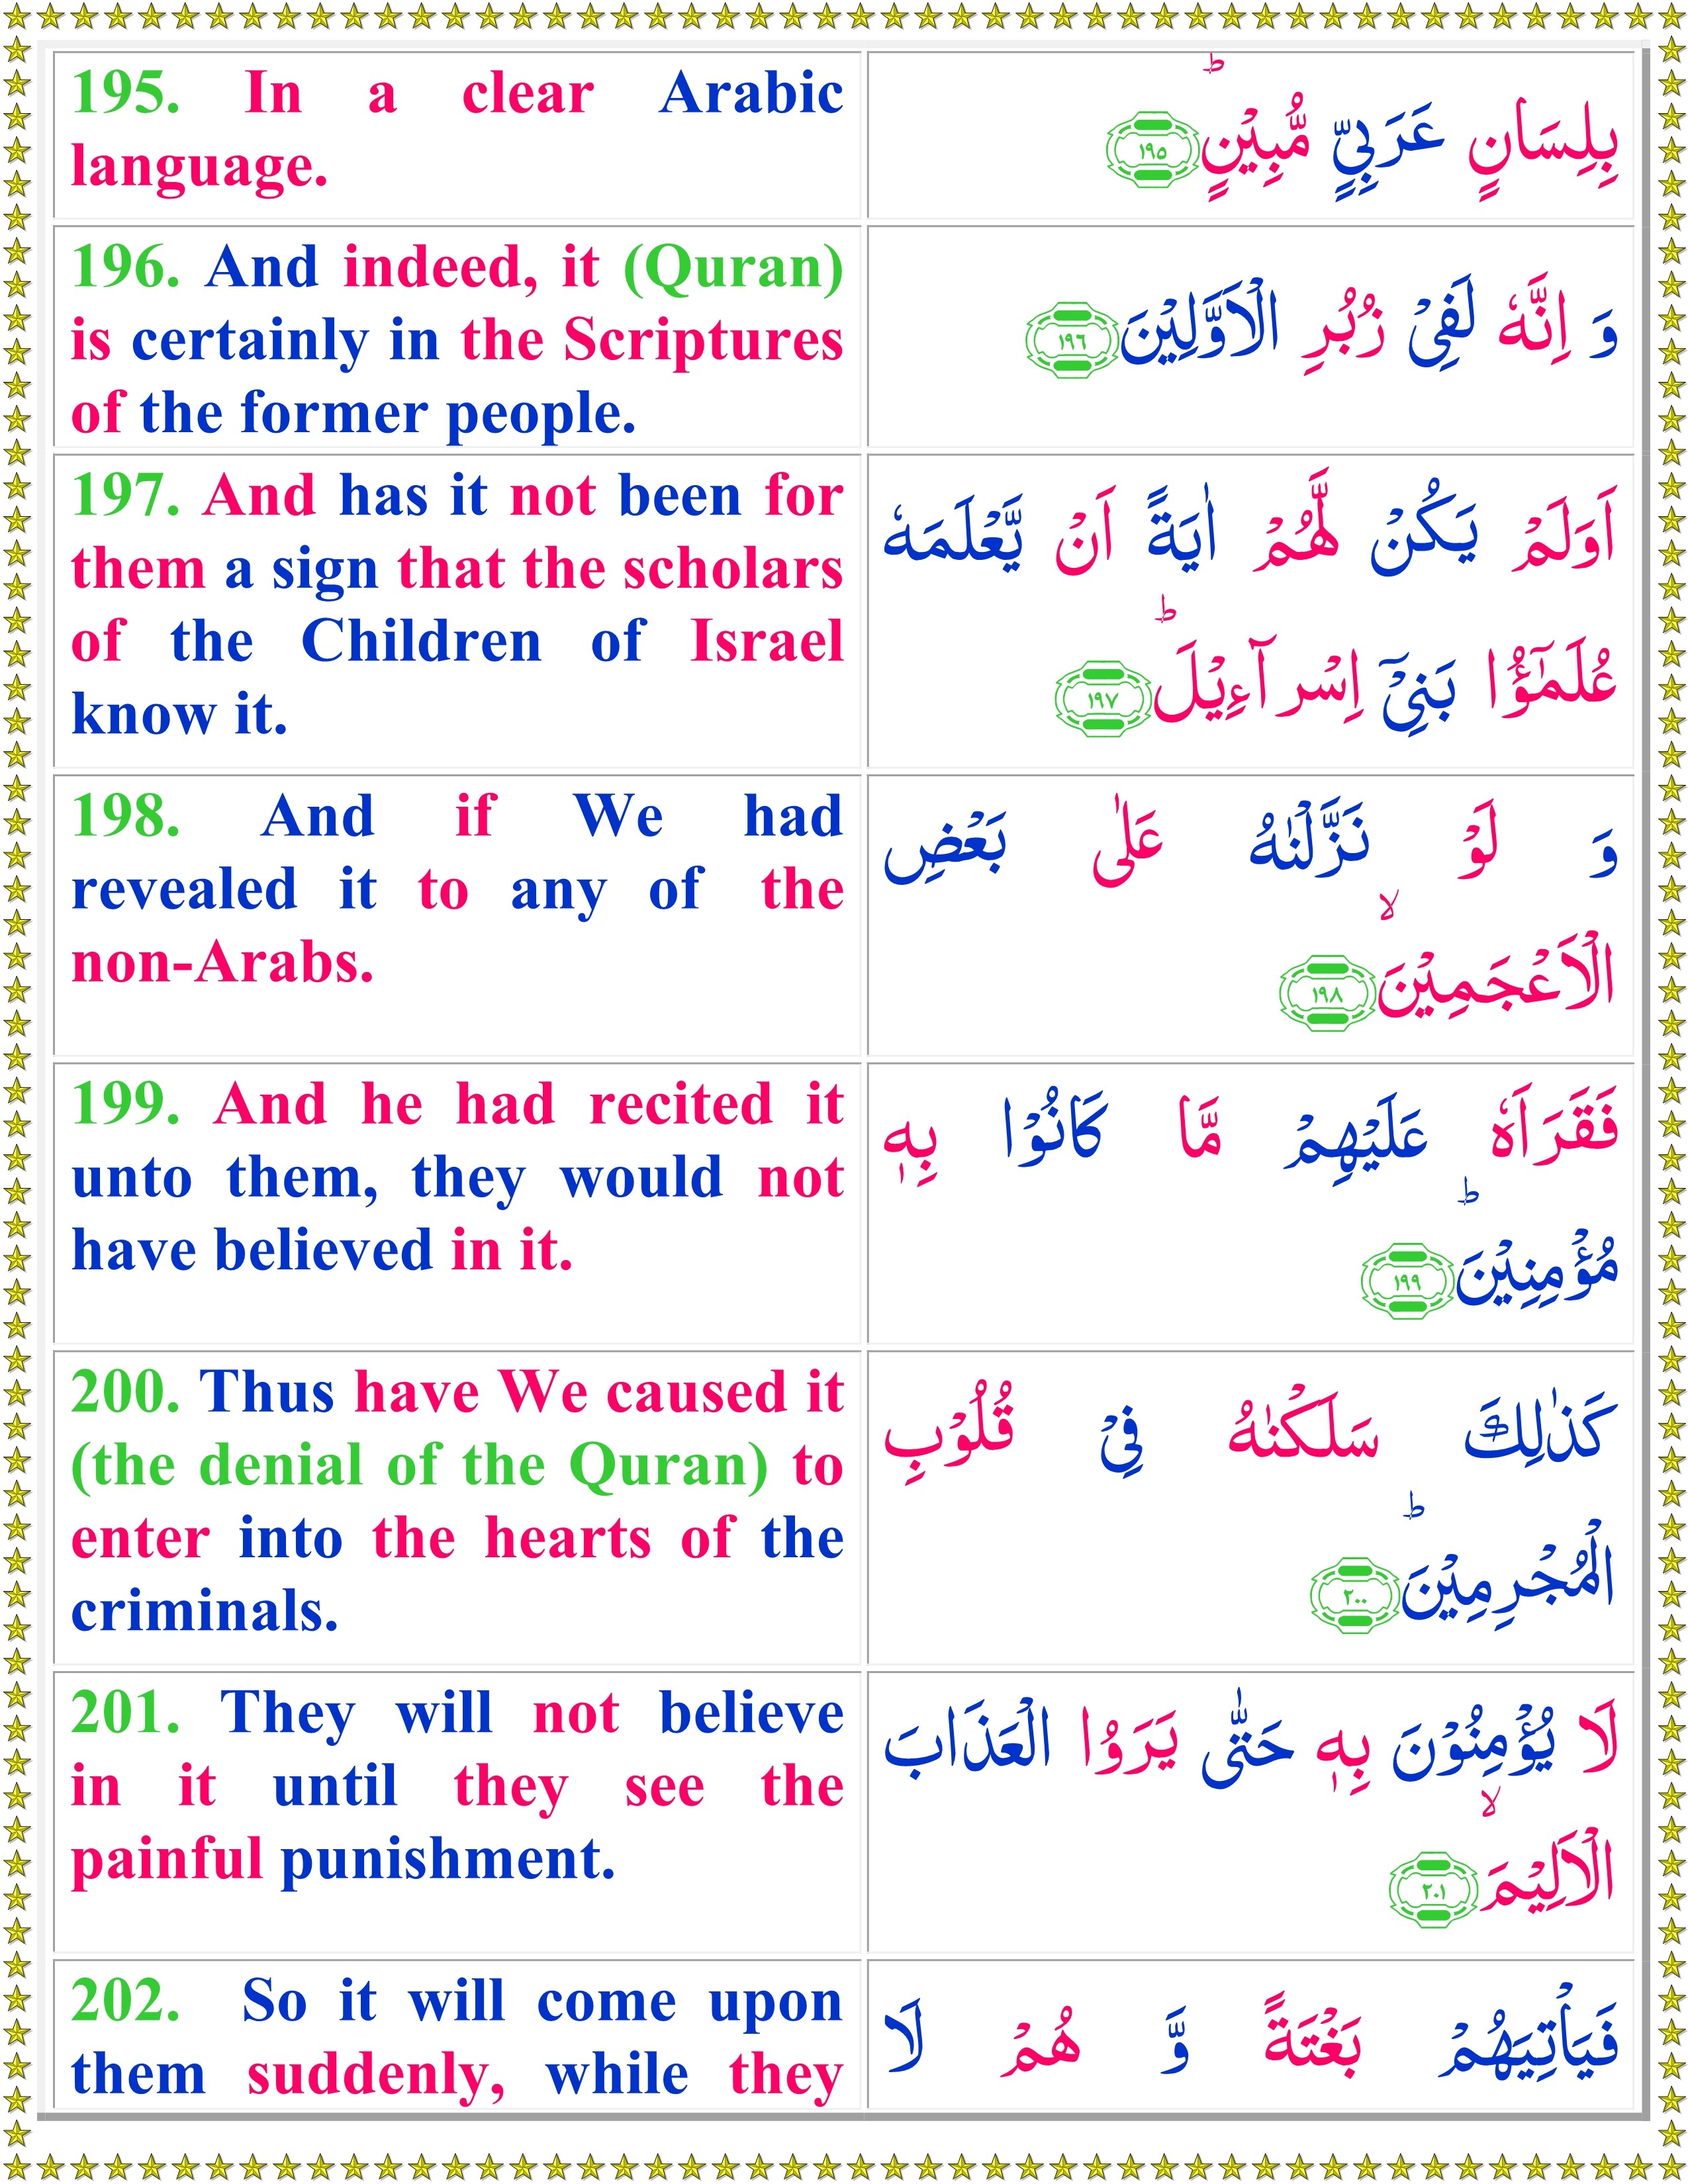 195. In a clear Arabic
language.
بِلِسَانٍ عَرَبِيٍّ مُّبِيْنٍؕ ۱۹۵
196. And indeed, it (Quran)
is certainly in the Scriptures
of the former people.
وَ اِنَّهٗ لَفِیْ زُبُرِ الْاَوَّلِيْنَ ۱۹۶
197. And has it not been for
them a sign that the scholars
of the Children of Israel
know it.
اَوَلَمْ يَكُنْ لَّهُمْ اٰيَةً اَنْ يَّعْلَمَهٗ
عُلَمٰٓؤُا بَنِیْۤ اِسْرآءِيْلَؕ ۱۹۷
198. And if We had
revealed it to any of the
non-Arabs.
وَ لَوْ نَزَّلْنٰهُ عَلٰى بَعْضِ
الْاَعْجَمِيْنَۙ ۱۹۸
199. And he had recited it
unto them, they would not
have believed in it.
فَقَرَاَهٗ عَلَيْهِمْ مَّا كَانُوْا بِهٖ
مُؤْمِنِيْنَؕ ۱۹۹
200. Thus have We caused it
(the denial of the Quran) to
enter into the hearts of the
criminals.
كَذٰلِكَ سَلَكْنٰهُ فِیْ قُلُوْبِ
الْمُجْرِمِيْنَؕ ۲۰۰
201. They will not believe
in it until they see the
painful punishment.
لَا يُؤْمِنُوْنَ بِهٖ حَتّٰى يَرَوُا الْعَذَابَ
الْاَلِيْمَۙ ۲۰۱
202. So it will come upon
them suddenly, while they
فَيَاْتِيَهُمْ بَغْتَةً وَّ هُمْ لَا